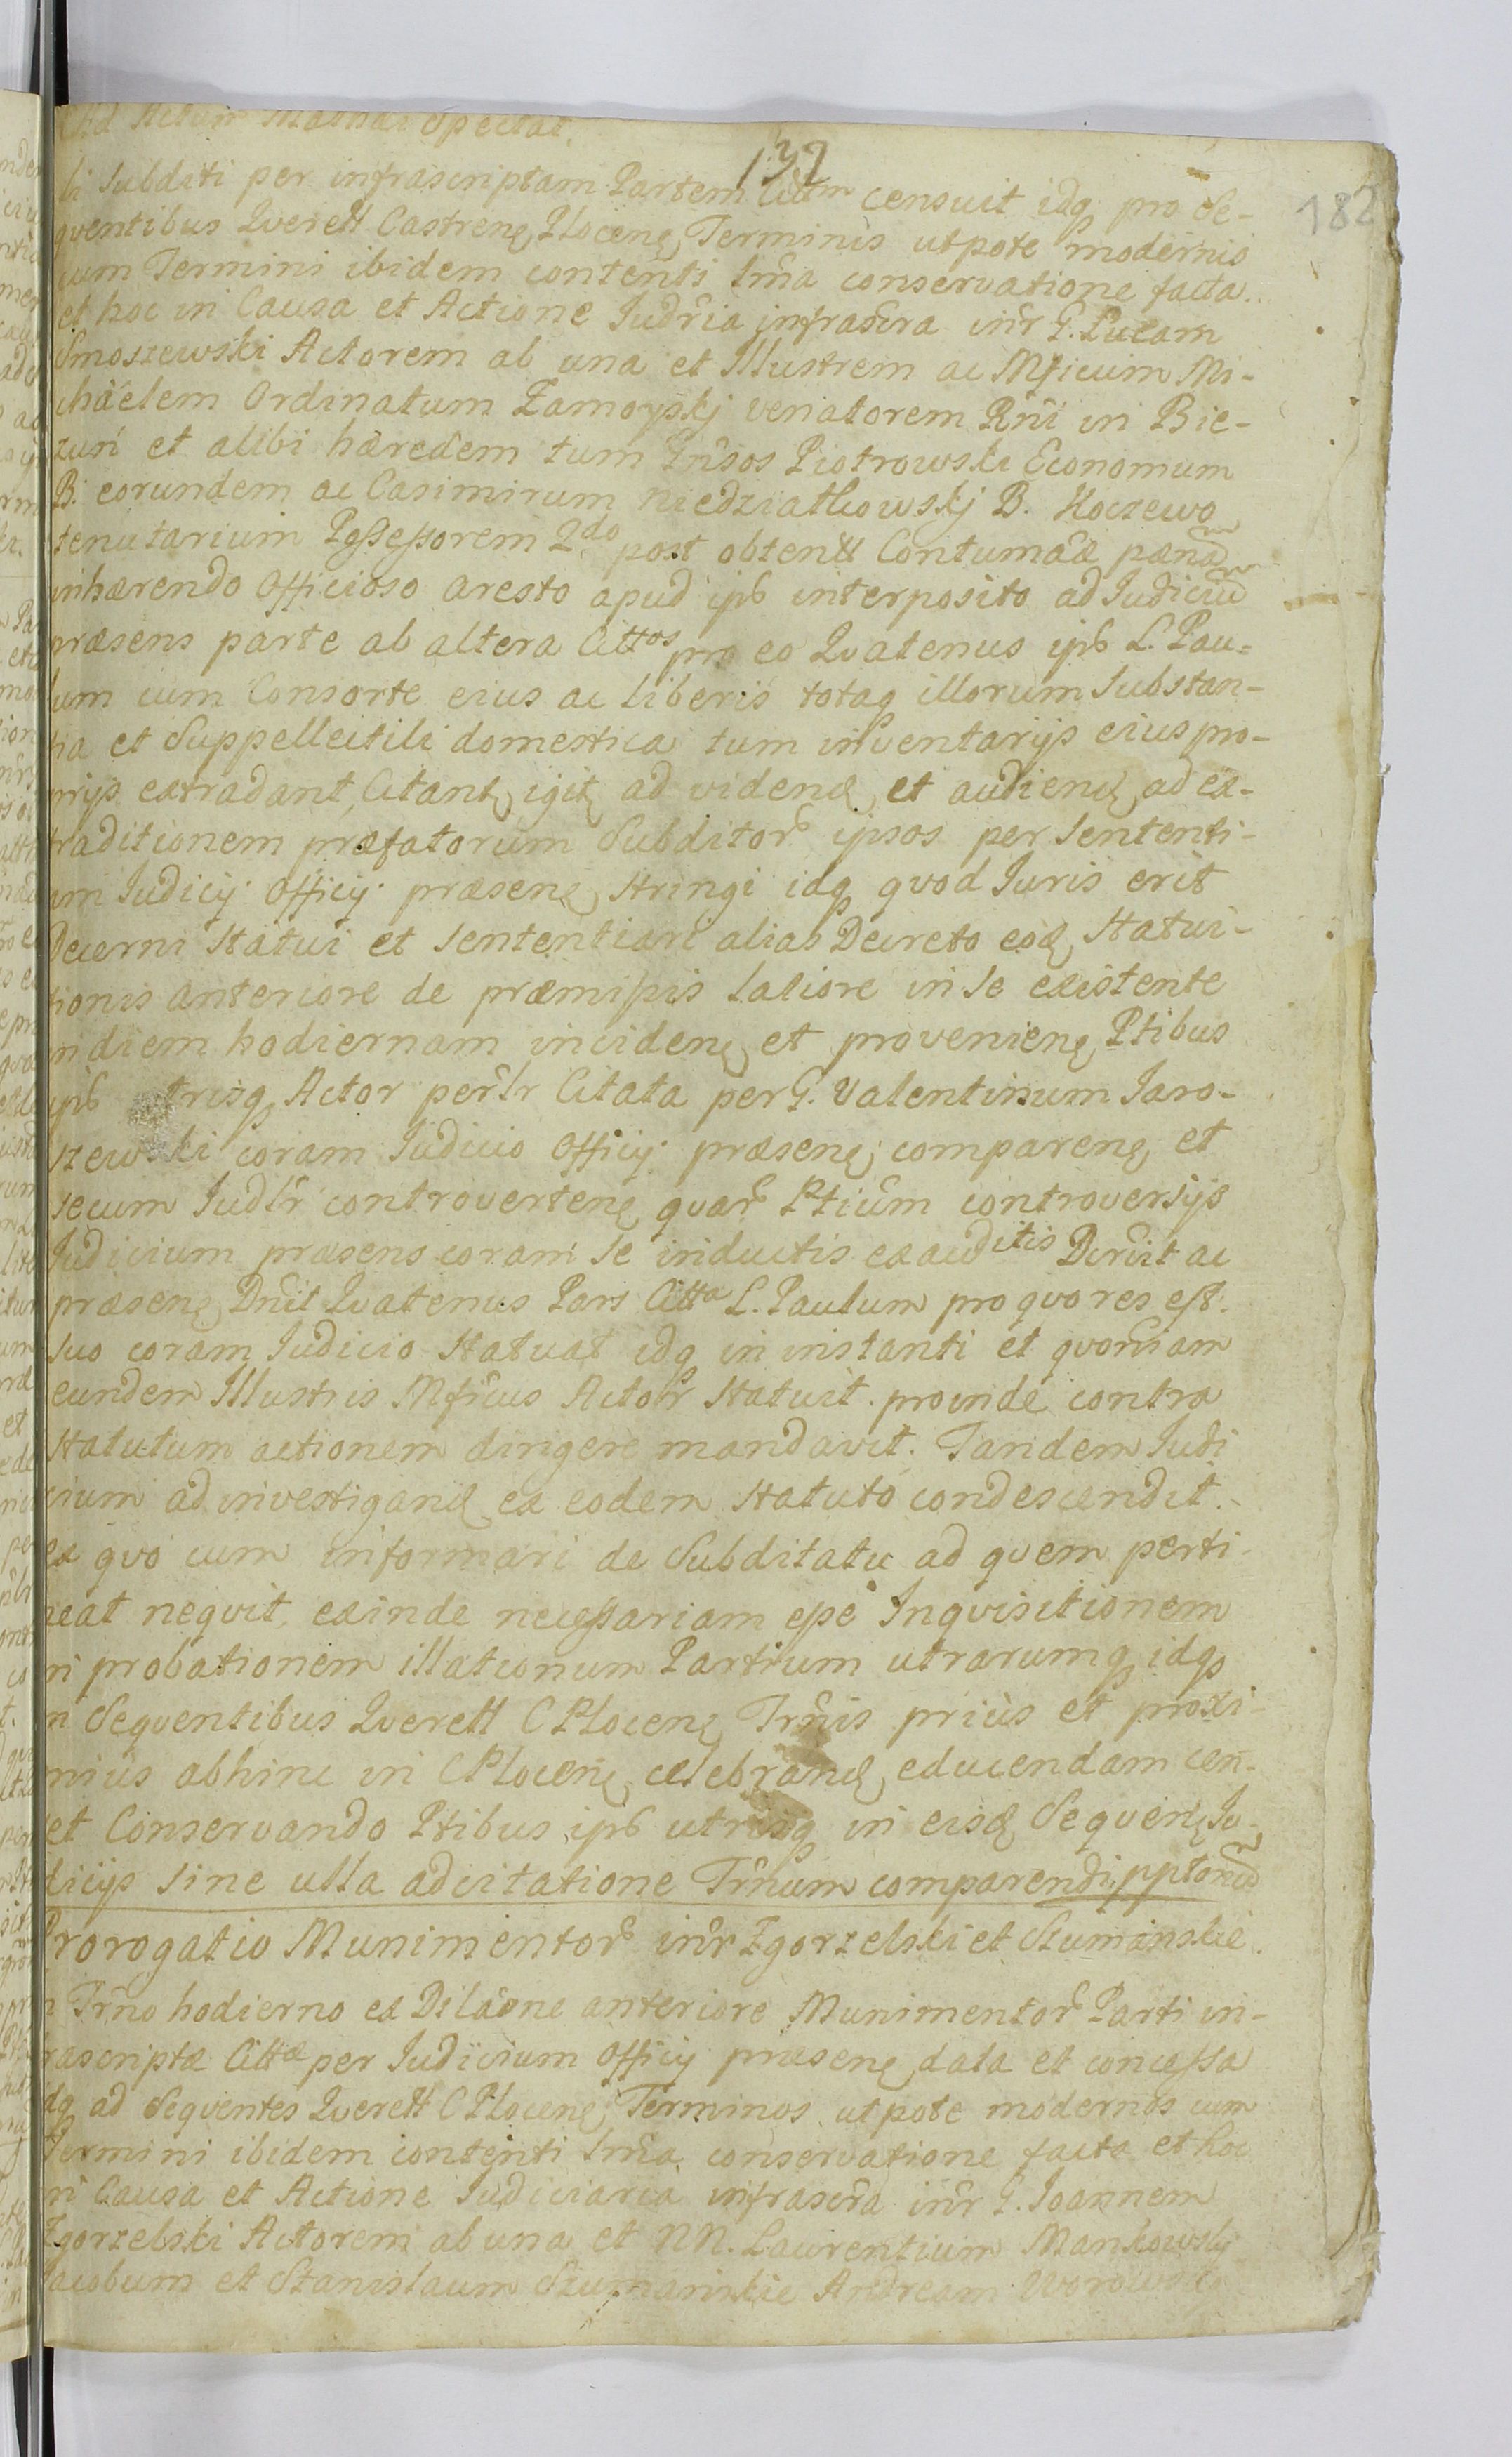 Actum spectat
132
182
li Subditi per infrascriptam Partem Cittm censuit idq pro se-
qventibus Qverell Castrenę Plocenę Terminis utpote modernis
cum Termini ibidem contenti Irńa conservatione facta
et hoc in Causa et Actione Judr̃ia infrascr̃a inr̃ G. Lucam
Smoszewski Actorem ab una et Illustrem ac Mficum Mi-
chäelem Ordinatum Zamoyskj venatorem Rńi in Bie-
zuń et alibi hæredem tum Pńsos Piotrowski Economum
B. eorundem ac Casimirum Niedziałkowskj B. Koczewo
tenutarium Poßeßorem 2do post obtent Contumaĉæ pæna
inhærendo Officioso aresto apud ipß interposito ad Judiciũ
præsens parte ab altera Cittos pro eo Qvatenus ipß L. Pau-
lum cum Consorte eius ac liberis totaq illorum Substan-
tia et Suppellectili domestica tum inventarijs eius pro-
prijs extradant, Citantę igitę ad videnď et audienď ad ex-
traditionem præfatorum Subditor̃ ipsos per Sententi-
am Judicij Officij præsenę stringi idq qvod Juris erit
Decerni Statui et Sententiari alias Decreto eoď Statui-
tionis anteriore de præmißis latiore in se existente
in diem hodiernam incidenę et provenienę Ptibus
ipß trisq Actor per̃lr Citata per G. Valentinum Jaro-
szewski coram Judicio Officij præsenę comparenę et
secum Judlr̃ controvertenę qvar̃ Ptium controversijs
Judicium præsens coram se inductis exauditis Dcrũit ac
præsenę Dnũt Qvatenus Pars Citta L. Paulum pro qvo res est
suo coram Judicio Statuat idq in instanti et qvoniam
eundem Illustris Mficus Actor Statuit proinde contra
Statutum actionem dirigere mandavit. Tandem Judi
cium ad investiganď ex eodem Statuto condescendit.
ex qvo cum informari de Subditatu ad qvem perti-
neat neqvit exinde necessariam eße Inqvisitionem
in probationem illationum Partium utrarumq idq
in Seqventibus Qverell C Plocenę Trńis priùs et proxi-
miùs abhinc in C Plocenę celebranď educendam cen-
et Conservando Ptibus ipß utrisq in eisď Seqvenę Ju-
dicijs sine ulla adcitatione Trńum comparendi pptonũ
Prorogatio Munimentor̃ inr̃ Zgorzelski et Szumanskie.
n Trńo hodierno ex Dilaõne anteriore Munimentor̃ Parti in-
frascriptæ Cittæ per Judicium Officij præsenę data et concessa
idq ad Seqventes Qverell C Plocenę Terminos utpote modernos cum
Termini ibidem contenti Irńa conservatione facta et hoc
in Causa et Actione Judiciaria infrascr̃a inr̃ G. Joannem
Zgorzelski Actorem ab una et NN. Laurentium Mankowskj
Jacobum et Stanislaum Szumanskie Andream